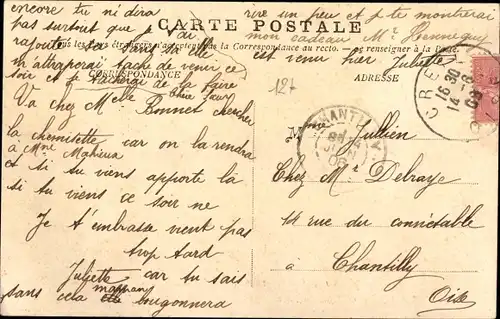 encore tu ni dira
pas surtout que je t'ai
rajouté
m'attraporai tache de venir ce
soir et je tacherai de la faire
rire un peu et je te montrerai
mon cadeau Mr Hennequy
est venu hier Juliette
CARTE POSTALE
Tous les pays étrangers n'acceptent pas la Correspondance au recto. se renseigner à la Poste
CORRESPONDANCE
ADRESSE
127
Va chez Melle Bonnet chercher
la chemisette car on la rendra
à Mme Mahieux
et si tu viens apporte la
si tu viens ce soir ne
Je t'embrasse vient pas
trop tard
Juliette car tu sais
sans cela maman
bougonnera
CREIL
16 30
14 -8
CHANTILLY
OISE
Mme Jullien
Chez Mr Delraye
14 rue du connétable
à Chantilly
Oise